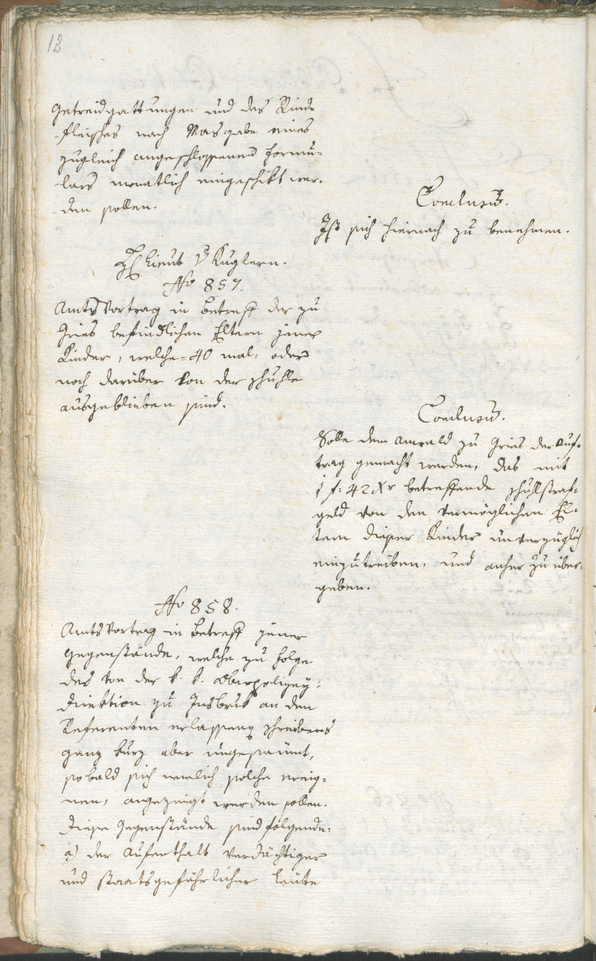 12
Getreidgattungen und des Rind-
fleisches nach Masgabe eines
zugleich angeschlossenen Formu-
lars monatlich eingeschikt wer-
den sollen.
Conclusum.
Ist sich hiernach zu benehmen.
H Lieut v Kuglern.
No 857.
Amts Vortrag in betreff der zu
Gries befindlichen Eltern jener
Kinder, welche 40 mal, oder
noch darüber von der schuhle
ausgeblieben sind.
Conclusum.
Solle dem Anwald zu Gries der Auf-
trag gemacht werden, das mit
1 f. 42 Xr betreffende schullstraf-
geld von den vermöglichen El-
tern dieser Kinder unverzüglich
einzutreiben, und anher zu über-
geben.
No 858.
Amts Vortrag in betreff jener
Gegenstände, welche zu folge
des von der k. k. Oberpolizey-
Direktion zu Insbruk an den
Referenten erlassenen schreibens
ganz kurz aber ungesäumt,
sobald sich nemlich solche ereig-
nen, angezeigt werden sollen.
Diese Gegenstände sind folgende:
a der Aufenthalt verdächtiger
und staatsgefährlicher leüte